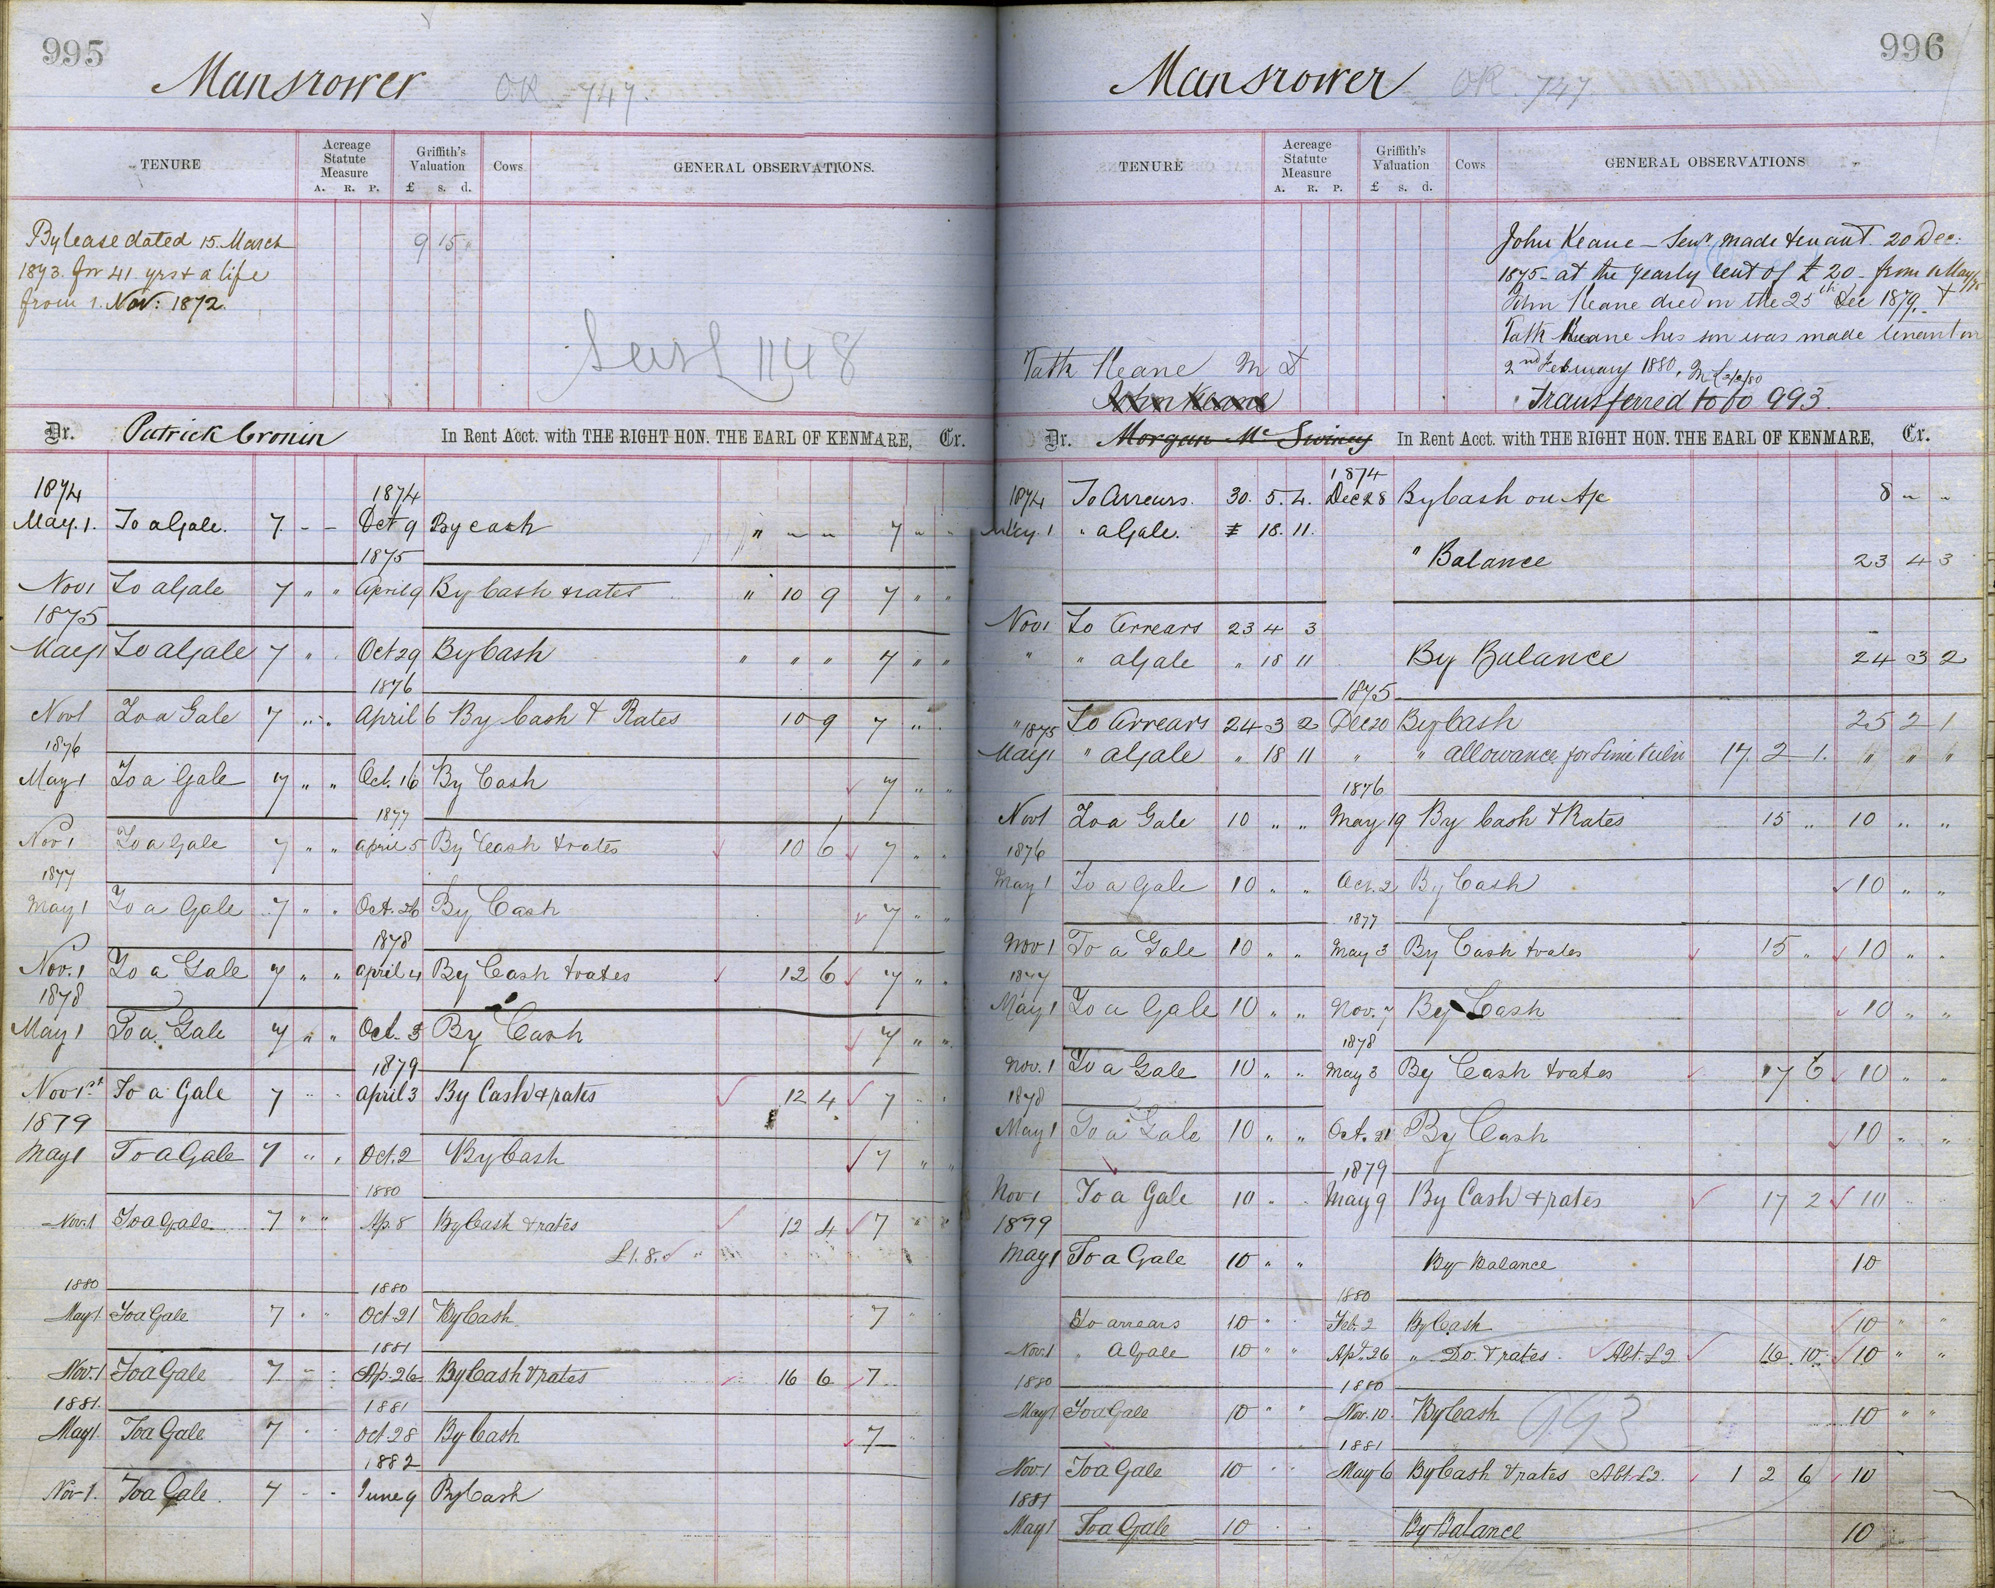 995
Mansrower OR 747.
TENURE
Acreage Statute Measure
A. R. P.
Griffith's Valuation
£ s. d.
Cows
GENERAL OBSERVATIONS.
By lease dated 15. March
1873. for 41 yrs & a life
from 1. Nov: 1872.
9 15 "
1148
Dr. Patrick Cronin In Rent Acct. with THE RIGHT HON. THE EARL OF KENMARE, Cr.
1874 1874
May. 1. To a Gale. 7 - - Oct 9 By cash " " " 7 " "
1875
Nov 1 To a Gale 7 " " April 9 By Cash & rates " 10 9 7 " "
1875
May 1 To a Gale 7 " " Oct 29 By Cash " " " 7 " "
1876
Nov 1 To a Gale 7 " " April 6 By Cash & Rates 10 9 7 " "
1876
May 1 To a Gale 7 " " Oct. 16 By Cash 7 " "
1877
Nov 1 To a Gale 7 " " April 5 By Cash & rates 10 6 7 " "
1877
May 1 To a Gale 7 " " Oct. 26 By Cash 7 " "
1878
Nov. 1 To a Gale 7 " " April 4 By Cash & rates 12 6 7 " "
1878
May 1 To a Gale 7 " " Oct. 3 By Cash 7 " "
1879
Nov 1st To a Gale 7 " " April 3 By Cash & rates 12 4 7 " "
1879
May 1 To a Gale 7 " " Oct. 2 By Cash 7 " "
1880
Nov. 1 To a Gale 7 " " Ap. 8 By Cash & rates 12 4 7 " "
£1.8.
1880 1880
May 1 To a Gale 7 " " Oct 21 By Cash 7 "
1881
Nov. 1 To a Gale 7 - - Ap. 26 By Cash & rates 16 6 7
1881. 1881
May 1 To a Gale 7 " " Oct 28 By Cash 7
1882
Nov 1. To a Gale. 7 - - June 9 By Cash
996
Mansrower OR. 747
TENURE
Acreage Statute Measure
A. R. P.
Griffith's Valuation
£ s. d.
Cows
GENERAL OBSERVATIONS
John Keane - Senr. made tenant. 20 Dec:
1875 - at the yearly rent of £20 - from 1 May/75
John Keane died on the 25th Dec 1879. &
Patk Keane his son was made tenant on
2nd February 1880.
Transferred to fo 993.
Patk Keane
John Keane
Dr. Morgan McSwiney In Rent Acct. with THE RIGHT HON. THE EARL OF KENMARE, Cr.
1874
1874 To Arrears. 30. 5. 4. Dec 28 By Cash on A/c 8 " "
May. 1 " a Gale. " 18. 11.
" Balance 23 4 3
Nov 1 To Arrears 23 4 3
" " a Gale " 18 11 By Balance 24 3 2
1875
" To Arrears 24 3 2 Dec 20 By Cash 25 2 1
1875
May 1 " a Gale " 18 11 " " allowance for 17. 2 1. " " "
1876
Nov 1 To a Gale 10 " " May 19 By Cash & Rates 15 " 10 " "
1876
May 1 To a Gale 10 " " Oct. 2 By Cash 10 " "
1877
Nov 1 To a Gale 10 " " May 3 By Cash & rates 15 " 10 " "
1877
May 1 To a Gale 10 " " Nov. 7 By Cash 10 " "
1878
Nov. 1 To a Gale 10 " " May 3 By Cash & rates 17 6 10 " "
1878
May 1 To a Gale 10 " " Oct. 21 By Cash 10 " "
1879
Nov 1 To a Gale 10 " " May 9 By Cash & rates 17 2 10
1879
May 1 To a Gale 10 " " By Balance 10
1880
To arrears 10 " " Feb. 2 By Cash 10 " "
Nov. 1 " a Gale 10 " " Apl. 26 " Do. & rates. Abt. £2 16 10 10 " "
1880 1880
May 1 To a Gale 10 " " Nov. 10. By Cash 10 " "
993
1881
Nov 1 To a Gale 10 " " May 6 By Cash & rates Abt £2. 1 2 6 10
1881
May 1 To a Gale 10 By Balance 10